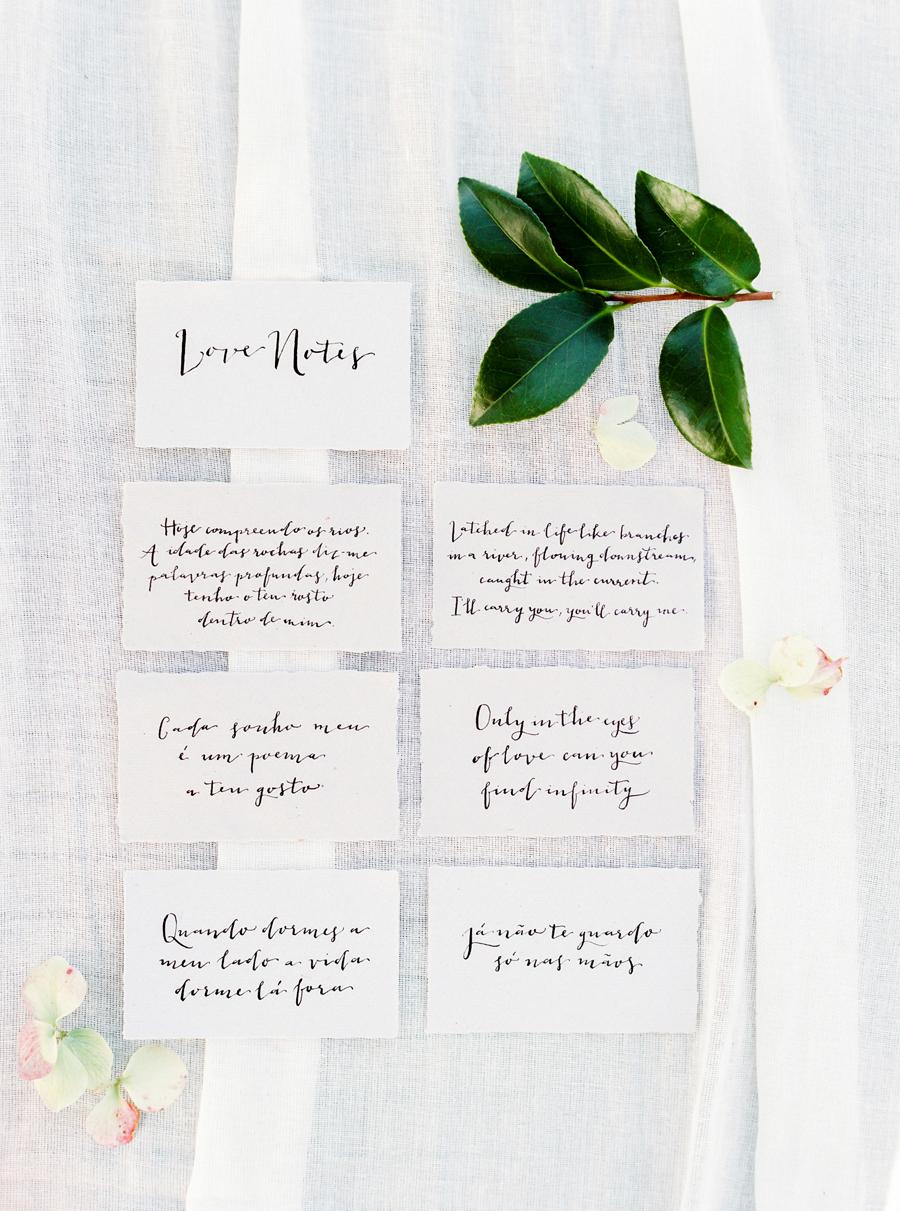 Love Notes
Hoje compreendo os rios.
A idade das rochas diz-me
palavras profundas, hoje
tenho o teu rosto
dentro de mim.
Latched in life like branches
in a river, flowing downstream,
caught in the current.
I'll carry you, you'll carry me.
Cada sonho meu
é um poema
a teu gosto
Only in the eyes
of love can you
find infinity
Quando dormes a
meu lado a vida
dorme lá fora
Já não te guardo
só nas mãos